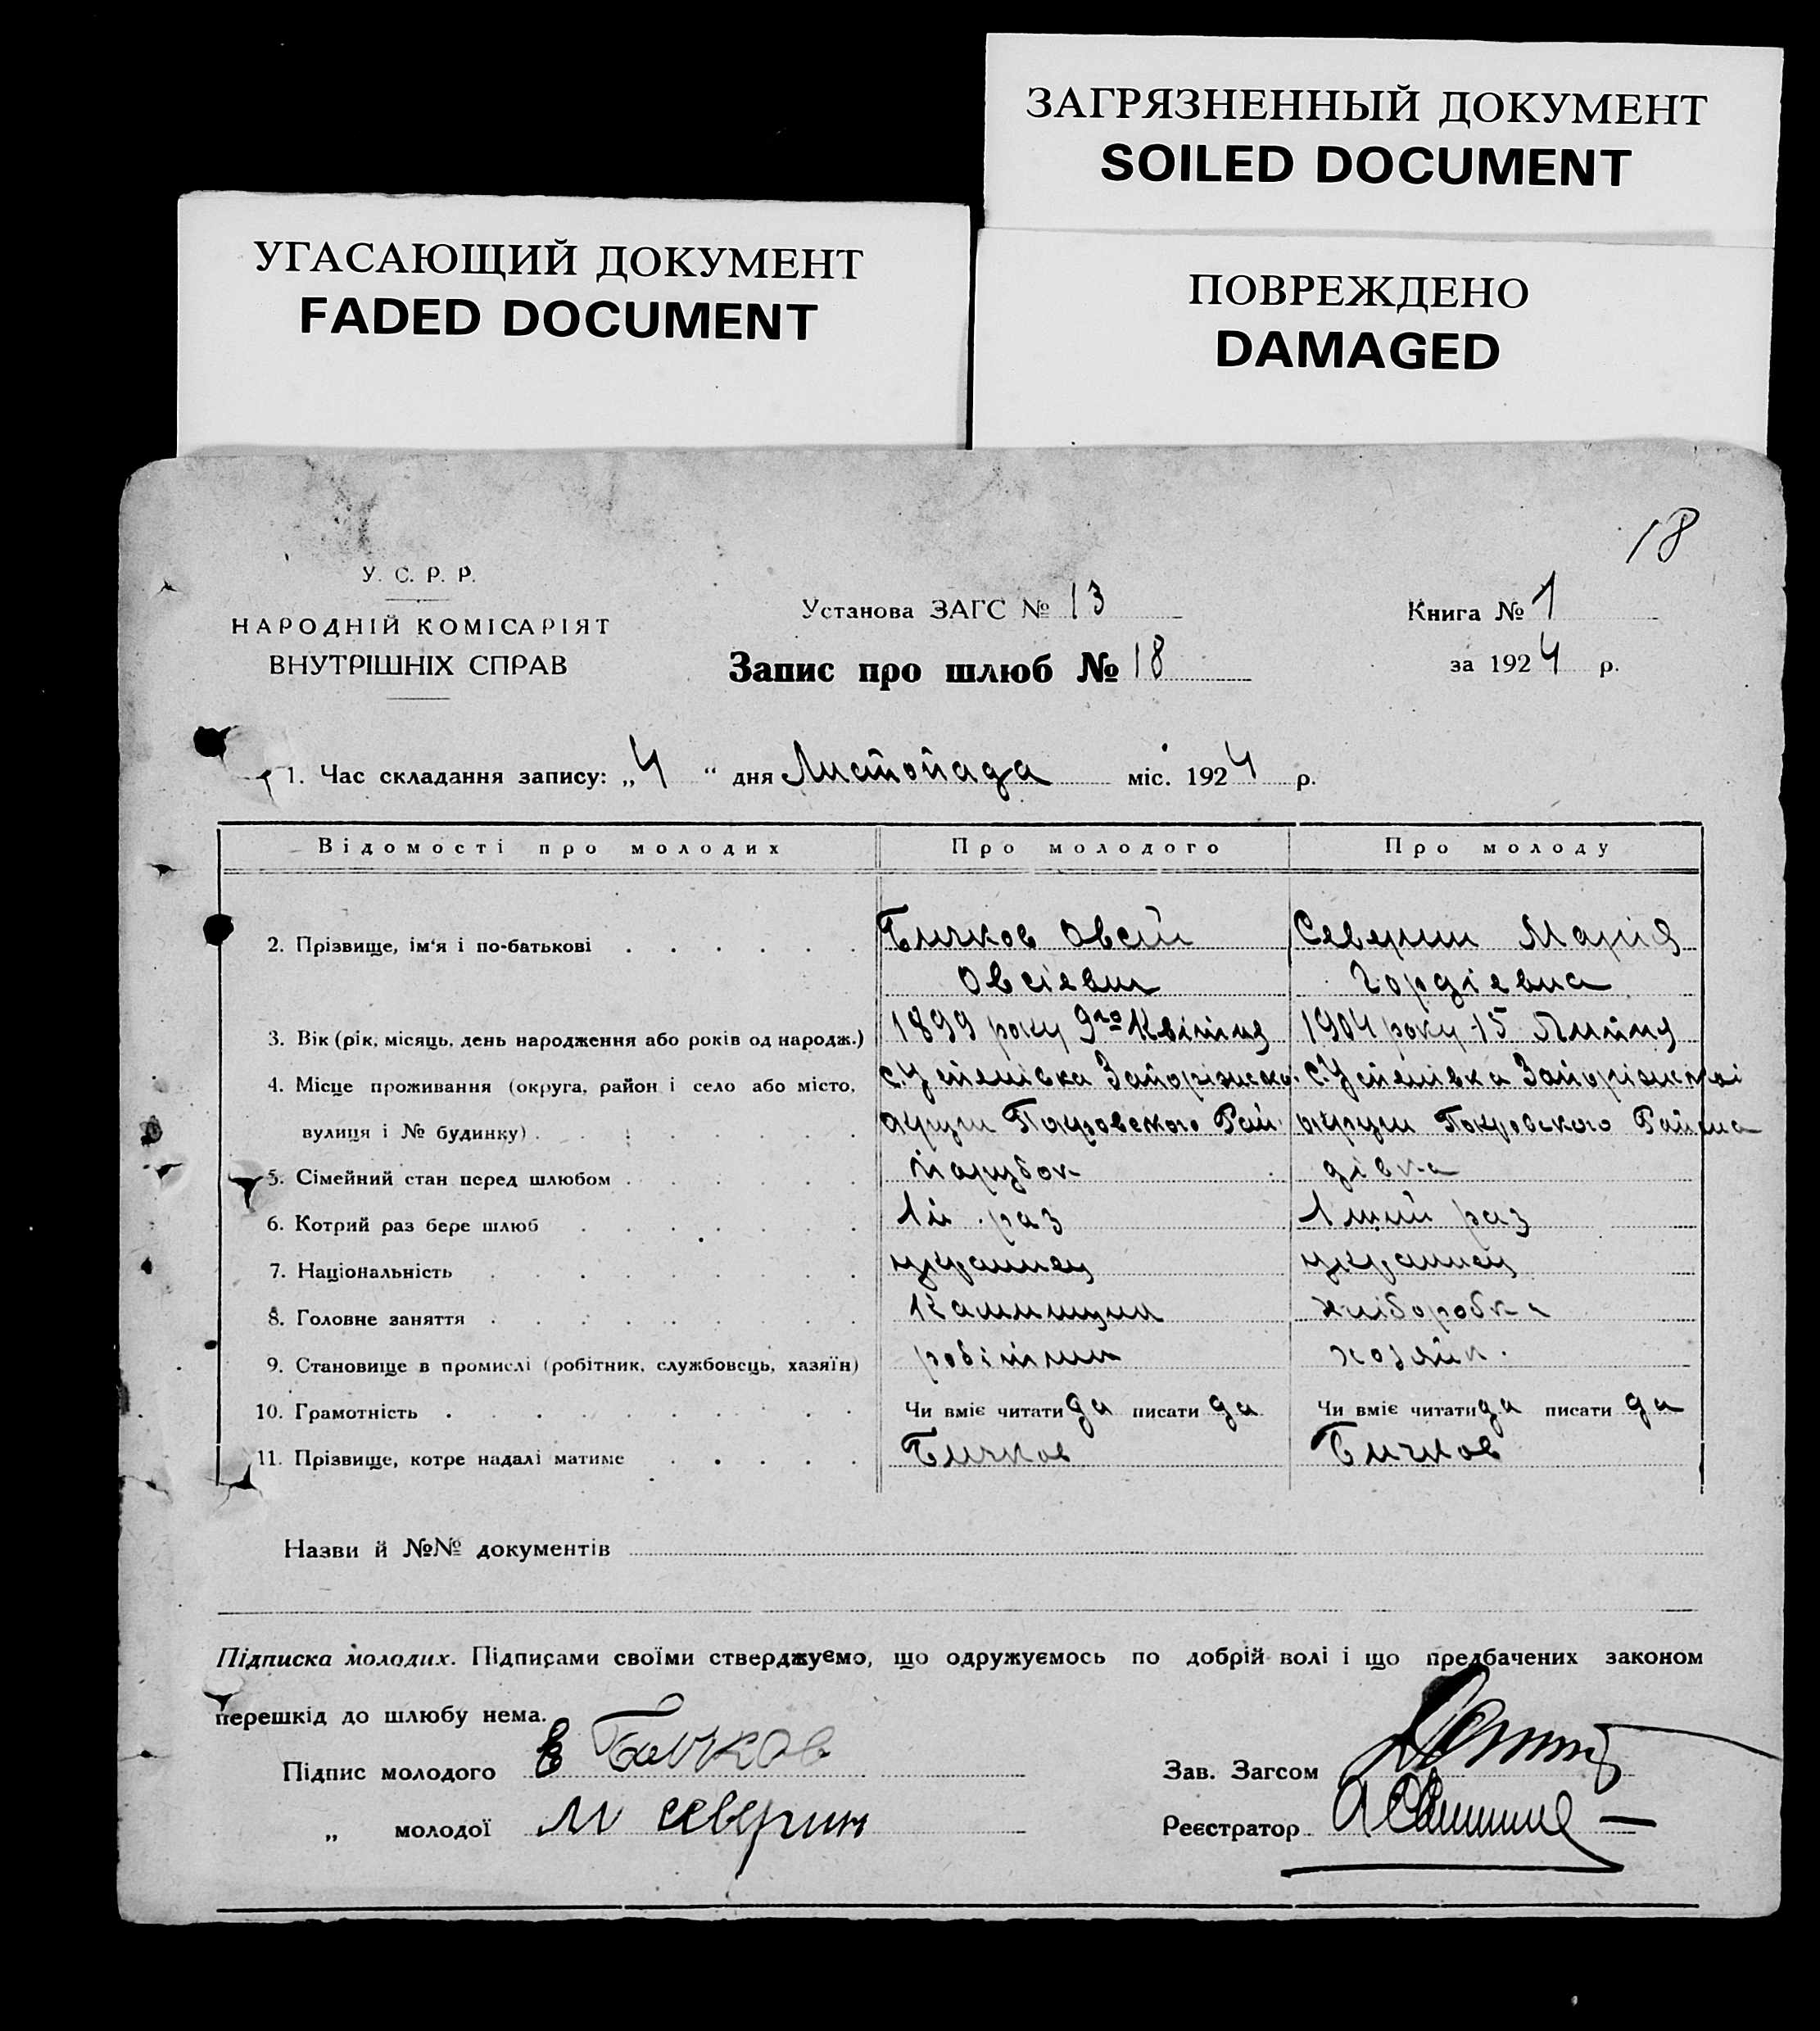 ЗАГРЯЗНЕННЫЙ ДОКУМЕНТ
SOILED DOCUMENT
УГАСАЮЩИЙ ДОКУМЕНТ
FADED DOCUMENT
ПОВРЕЖДЕНО
DAMAGED
18
У. С. Р. Р.
НАРОДНІЙ КОМІСАРІЯТ
ВНУТРІШНІХ СПРАВ
Установа ЗАГС № 13
Запис про шлюб № 18
Книга № 1
за 1924 р.
1. Час складання запису: „4“ дня Листопада міс. 1924 р.
Відомості про молодих Про молодого Про молоду
2. Прізвище, ім'я і по-батькові Бичков Овсій Северин Марія
Овсієвич Гордієвна
3. Вік (рік, місяць, день народження або років од народж.) 1899 року 9го Квітня 1904 року 15 Липня
4. Місце проживання (округа, район і село або місто, с. Успенівка с. Успенівка Запоріжскоі
вулиця і № будинку) округи Покровского Рай. округи Покровского Района
5. Сімейний стан перед шлюбом парубок дівка
6. Котрий раз бере шлюб 1й раз раз
7. Національність украинец украинец
8. Головне заняття хліборобка
9. Становище в промислі (робітник, службовець, хазяїн) робітник хозяйк.
10. Грамотність Чи вміє читати да писати да Чи вміє читати да писати да
11. Прізвище, котре надалі матиме Бичков Бичков
Назви й №№ документів
Підписка молодих. Підписами своїми стверджуємо, що одружуємось по добрій волі і що предбачених законом
перешкід до шлюбу нема.
Підпис молодого Бичков
Зав. Загсом
„ молодої М Северин
Реєстратор